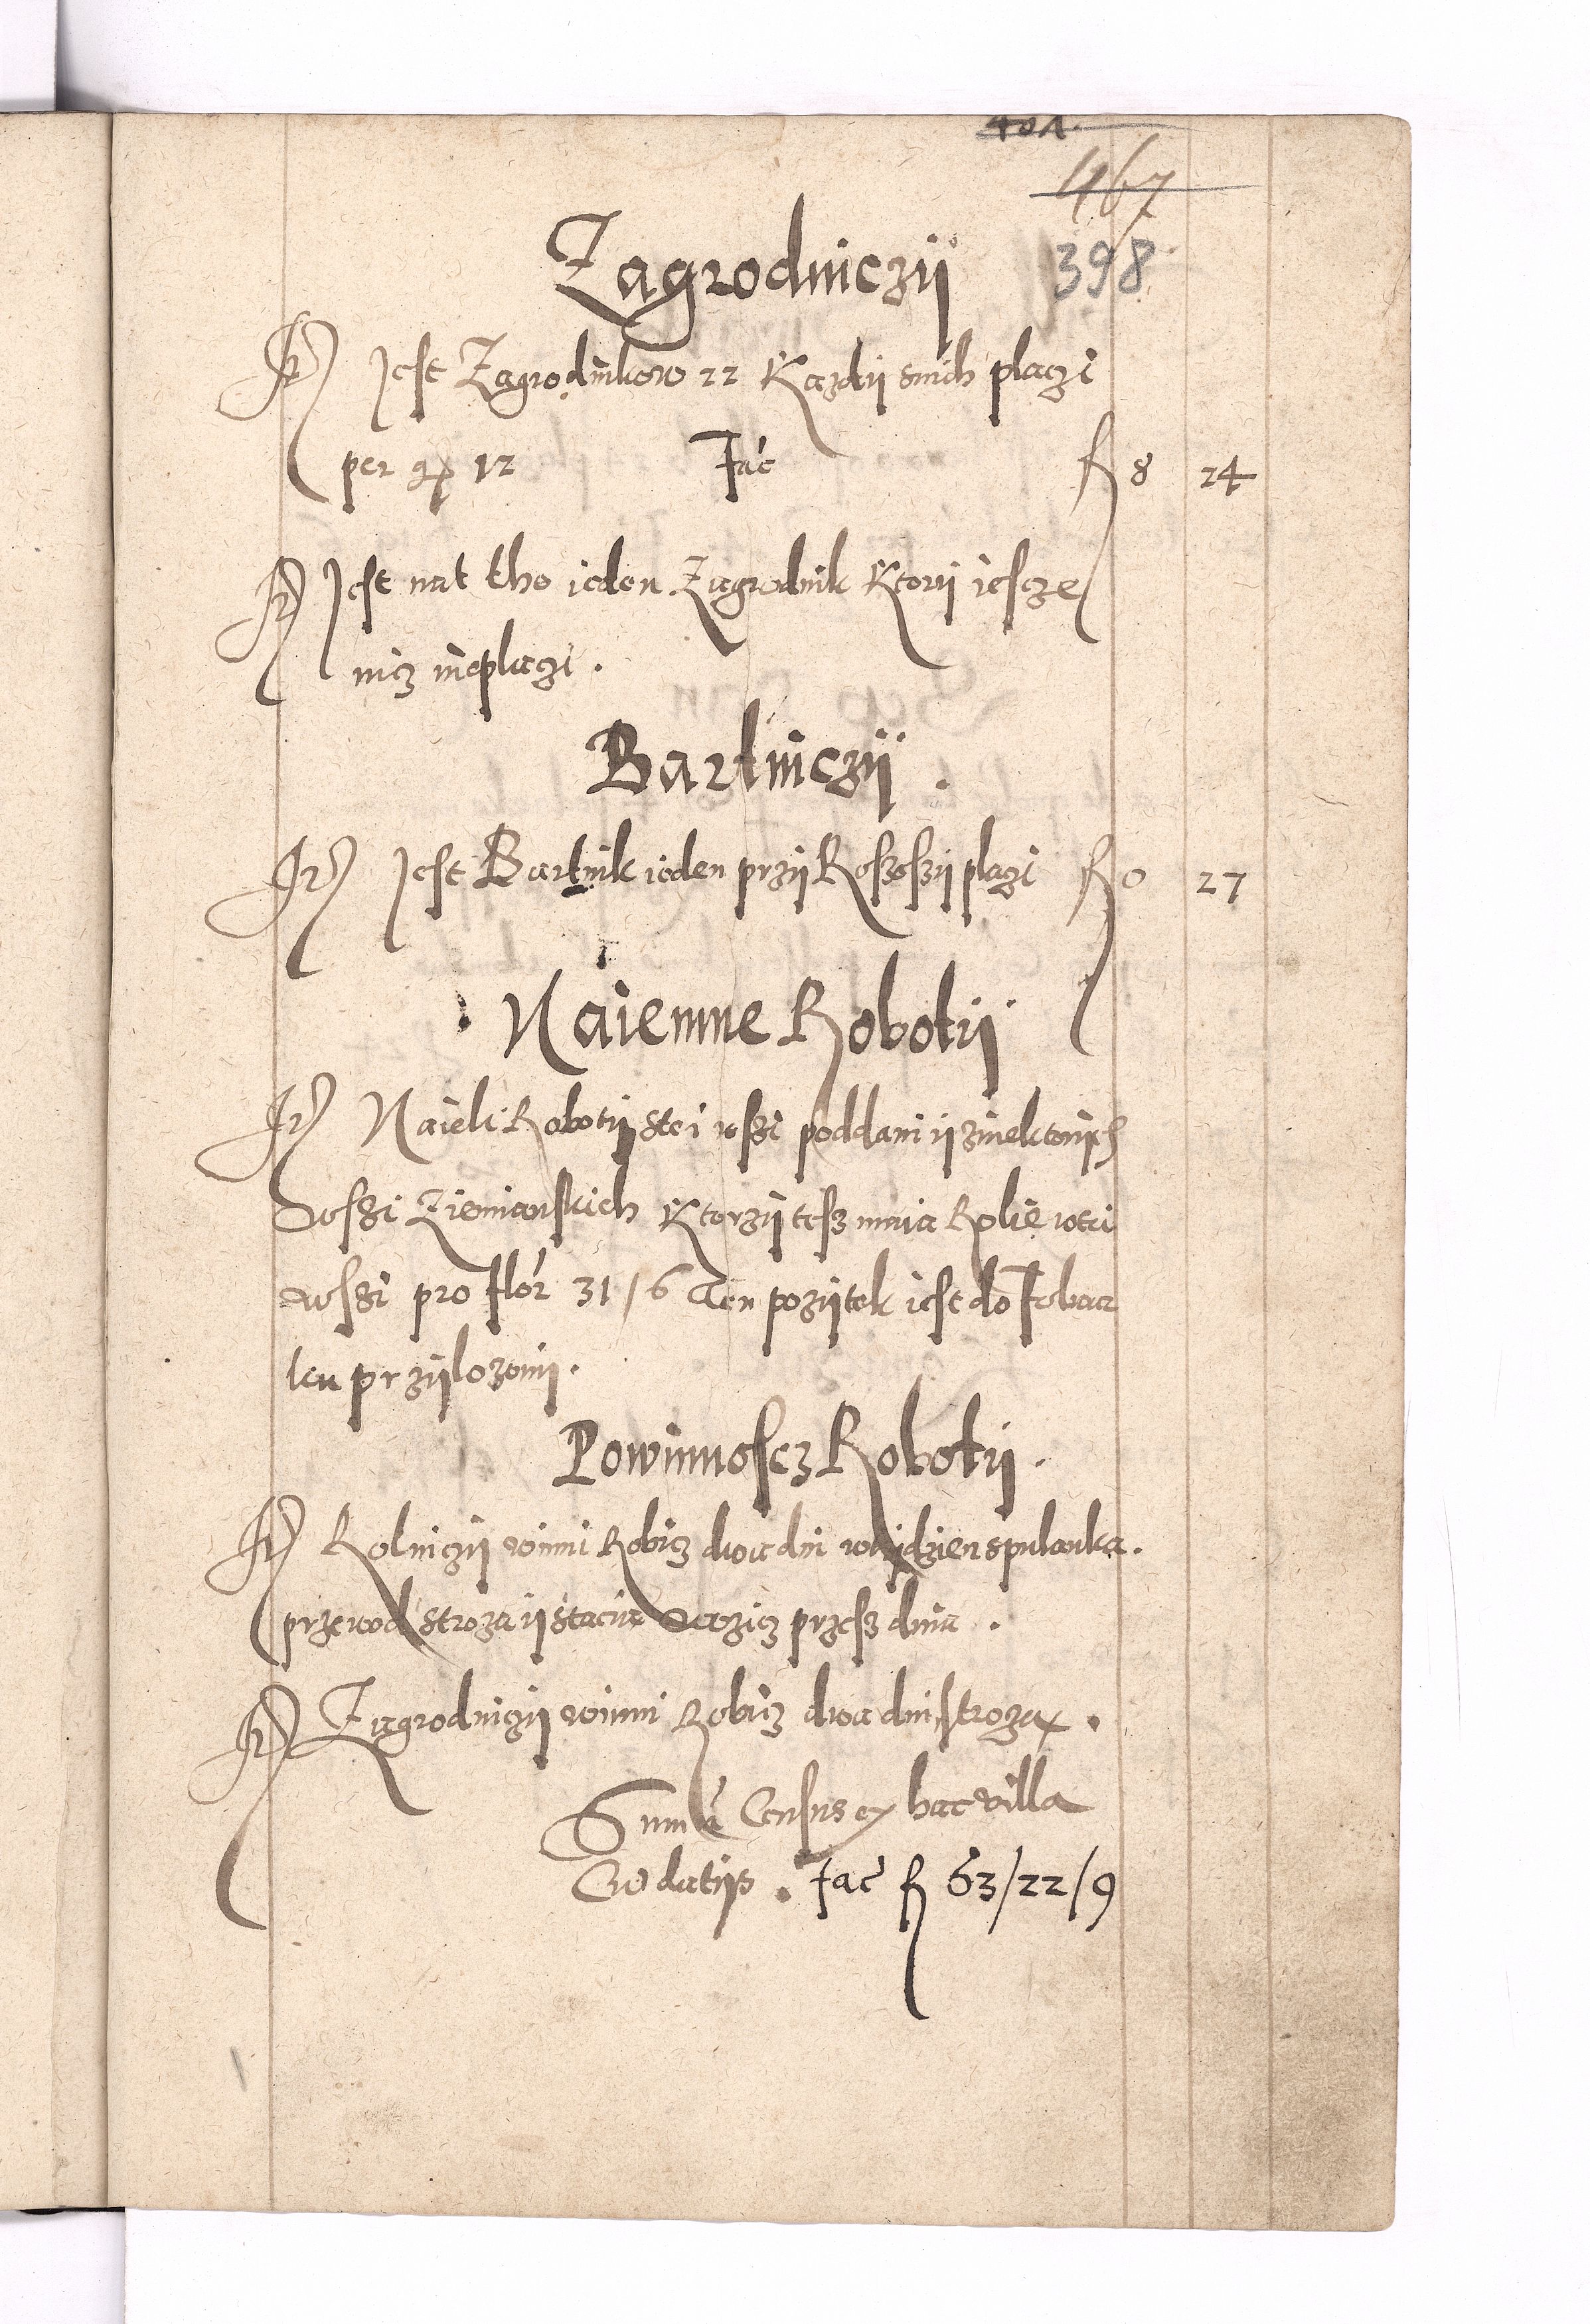 401.
467
398
Zagrodniczÿ
Jt Jest Zagrodnikow 22 Kazdÿ snich placzi
per gr 12 Fac fl 8 24
Jt Jest nat tho ieden Zagrodnik Ktorÿ iescze
nicz nieplaczi .
Bartniczÿ .
Jt Jest Bartnik ieden przÿ Rososzÿ placzi fl 0 27
Naiemne Robotÿ
Jt Naieli Robotÿ stei wszi poddani ÿ zniektorÿch
wszi Ziemianskich Ktorzÿ tesz maia Rolie wtei
wszi pro flor 31/6 Ten pozÿtek iest do Folwar
ku przÿlozonÿ .
Powinnoscz Robotÿ .
Jt Rolniczÿ winni Robicz dwa dni w tÿdzien spulanka .
przewod stroza ÿ stacia wozicz przesz dnia .
Jt Zagrodniczÿ winni Robicz dwa dni, stroza .
Summa Census ex hac villa
Cum datÿs . Fac fl 63/22/9